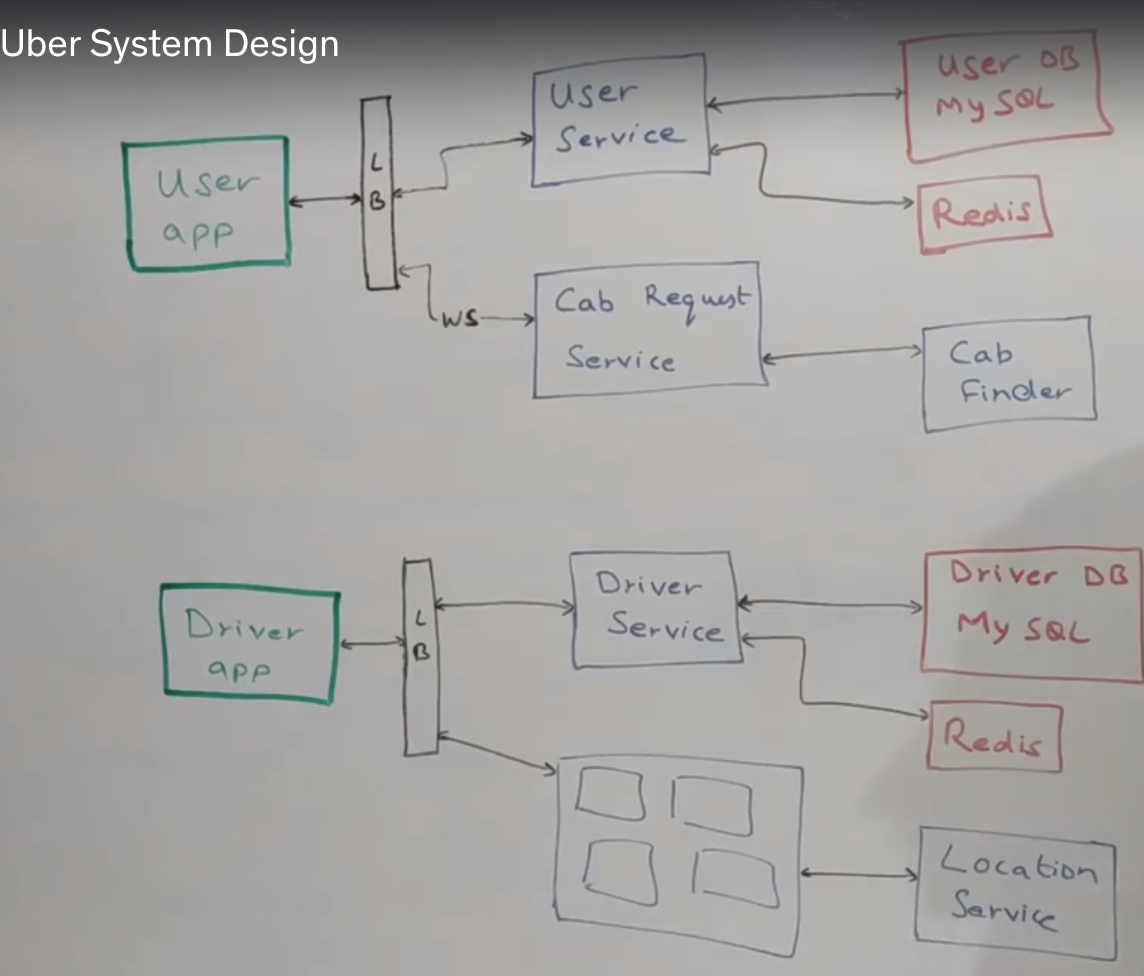 Uber System Design
User
app
L
B
User
Service
User DB
My SQL
Redis
WS
Cab Request
Service
Cab
Finder
Driver
app
L
B
Driver
Service
Driver DB
My SQL
Redis
Location
Service